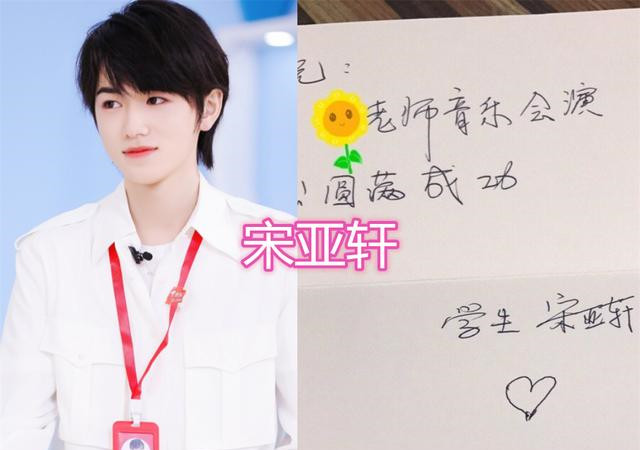 ：
老师音乐会演
圆满成功
宋亚轩
学生 宋亚轩